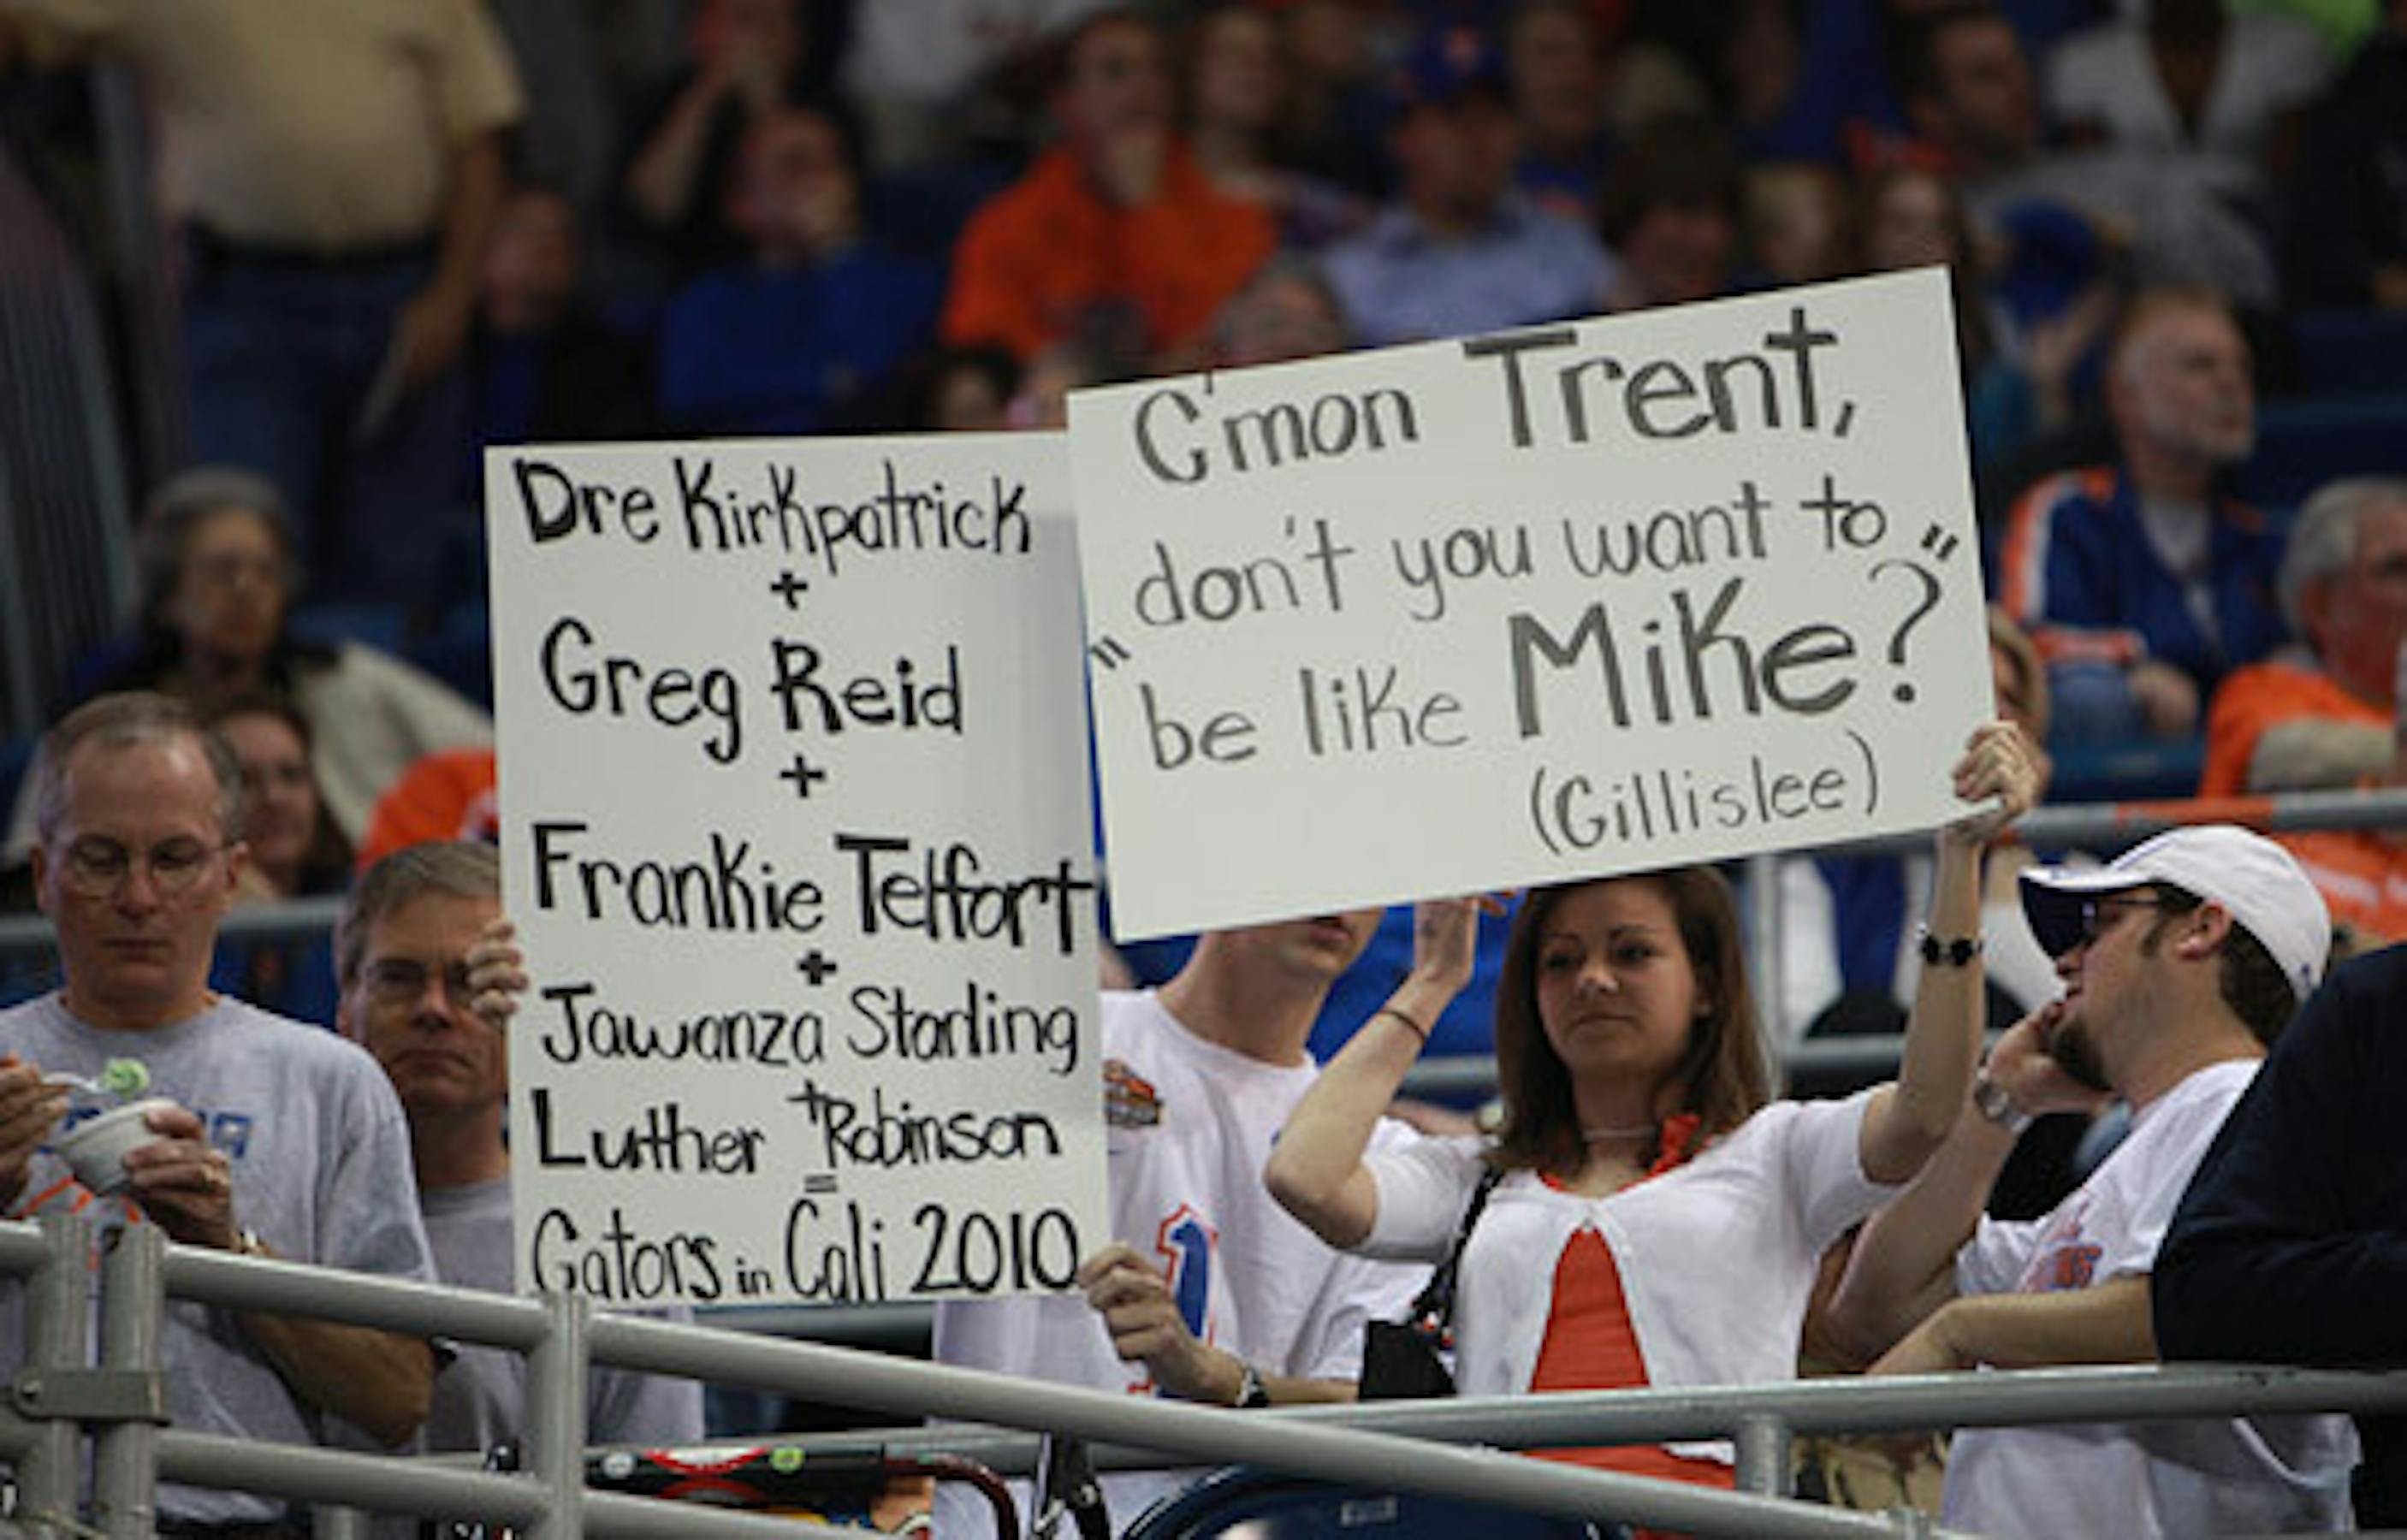 Dre Kirkpatrick
+
Greg Reid
+
Frankie Telfort
+
Jawanza Starling
+
Luther Robinson
=
Gators in Cali 2010
C'mon Trent,
"don't you want to
be like Mike?"
(Gillislee)